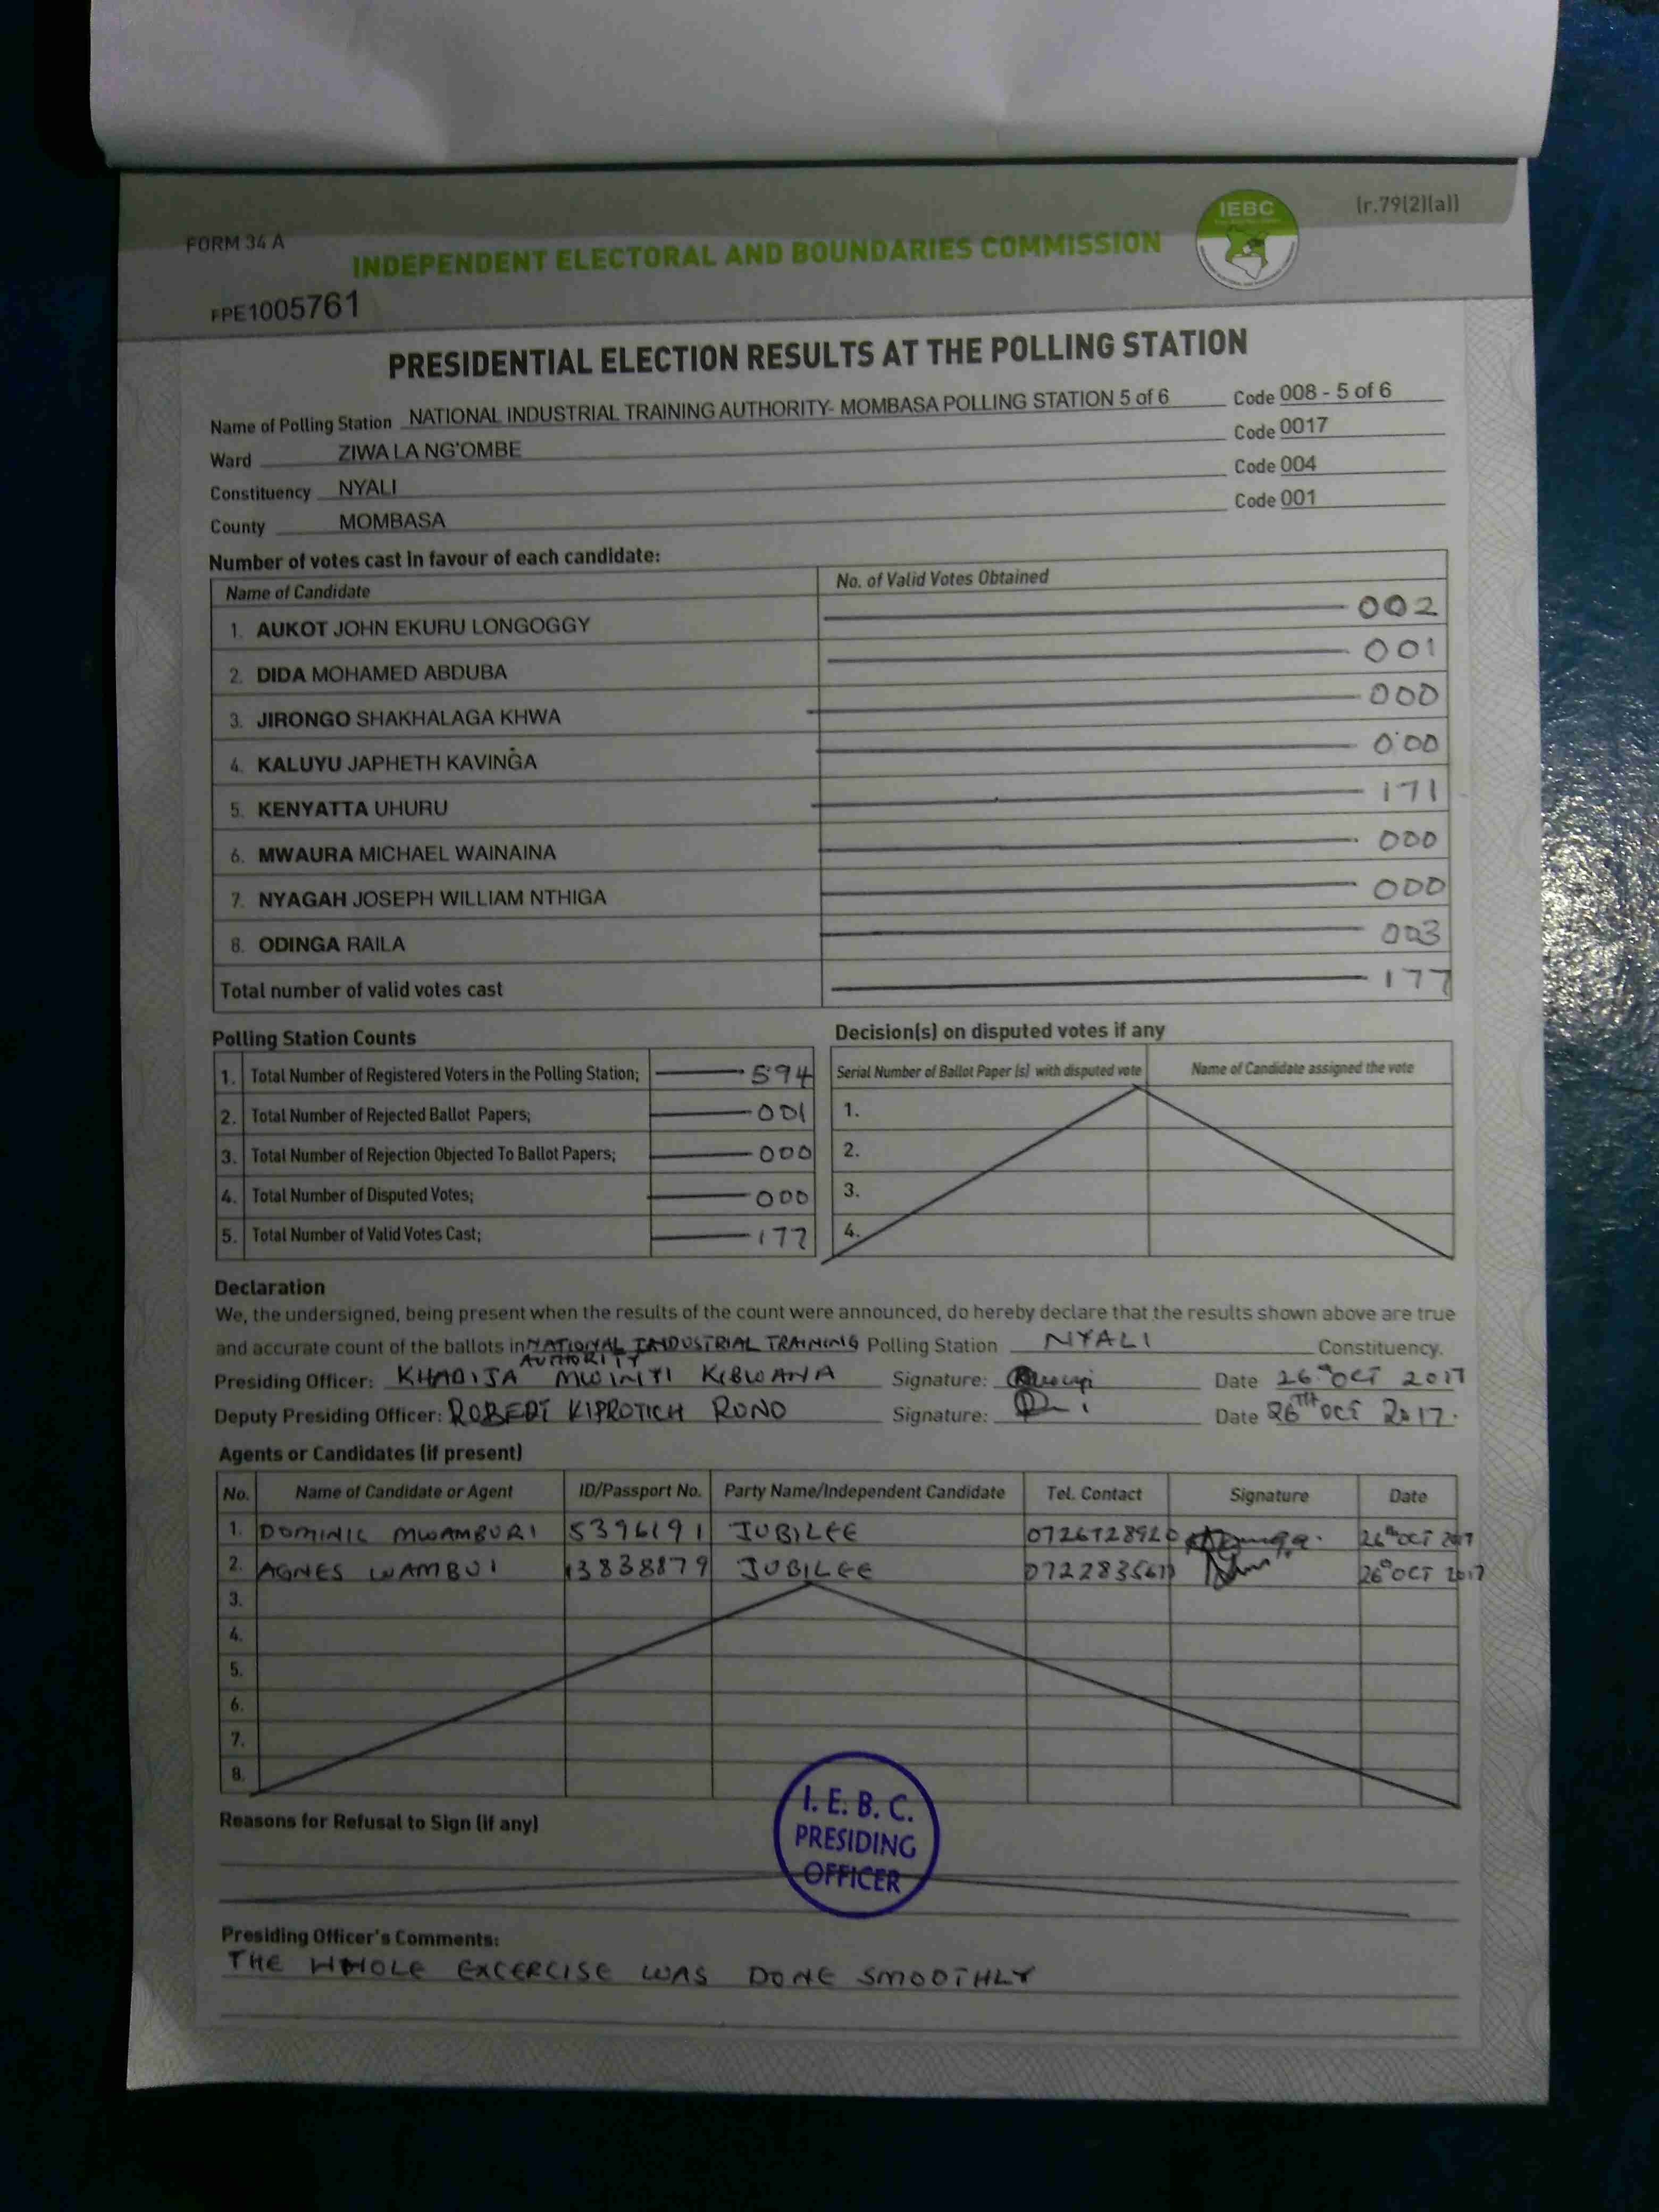 FORM 34 A
INDEPENDENT ELECTORAL AND BOUNDARIES COMMISSION
IEBC
(r.79(2)(a))
FPE1005761
PRESIDENTIAL ELECTION RESULTS AT THE POLLING STATION
Name of Polling Station NATIONAL INDUSTRIAL TRAINING AUTHORITY- MOMBASA POLLING STATION 5 of 6 Code 008 - 5 of 6
Ward ZIWA LA NG'OMBE Code 0017
Constituency NYALI Code 004
County MOMBASA Code 001
Number of votes cast in favour of each candidate:
Name of Candidate No. of Valid Votes Obtained
1. AUKOT JOHN EKURU LONGOGGY 002
2. DIDA MOHAMED ABDUBA 001
3. JIRONGO SHAKHALAGA KHWA 000
4. KALUYU JAPHETH KAVINGA 000
5. KENYATTA UHURU 171
6. MWAURA MICHAEL WAINAINA 000
7. NYAGAH JOSEPH WILLIAM NTHIGA 000
8. ODINGA RAILA 003
Total number of valid votes cast 177
Polling Station Counts
1. Total Number of Registered Voters in the Polling Station; 594
2. Total Number of Rejected Ballot Papers; 001
3. Total Number of Rejection Objected To Ballot Papers; 000
4. Total Number of Disputed Votes; 000
5. Total Number of Valid Votes Cast; 177
Decision(s) on disputed votes if any
Serial Number of Ballot Paper (s) with disputed vote Name of Candidate assigned the vote
1.
2.
3.
4.
Declaration
We, the undersigned, being present when the results of the count were announced, do hereby declare that the results shown above are true
and accurate count of the ballots in NATIONAL INDUSTRIAL TRAINING Polling Station NYALI Constituency.
AUTHORITY
Presiding Officer: KHADIJA MWINYI KIBWANA Signature: Date 26th OCT 2017
Deputy Presiding Officer: ROBERT KIPROTICH RONO Signature: Date 26TH OCT 2017.
Agents or Candidates (if present)
No. Name of Candidate or Agent ID/Passport No. Party Name/Independent Candidate Tel. Contact Signature Date
1. DOMINIC MWAMBURI 5396191 JUBILEE 0726728920 26th OCT 2017
2. AGNES WAMBUI 13838879 JUBILEE 26th OCT 2017
3.
4.
5.
6.
7.
8.
Reasons for Refusal to Sign (if any)
I. E. B. C.
PRESIDING
OFFICER
Presiding Officer's Comments:
THE WHOLE EXCERCISE WAS DONE SMOOTHLY